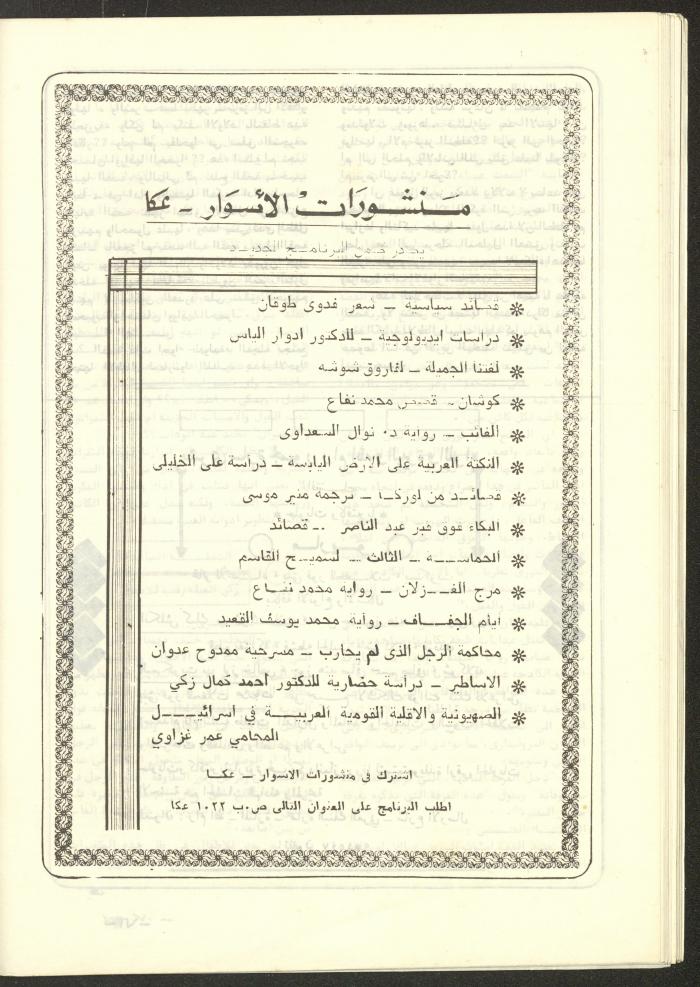 منشورات الأسوار - عكا
يصدر ضمن البرنامج الجديد
قصائد سياسية - شعر فدوى طوقان
دراسات ايديولوجية - للدكتور ادوار الياس
لغتنا الجميلة - لفاروق شوشه
كوشان - قصص محمد نفاع
الغائب - رواية د. نوال السعداوى
النكتة العربية على الارض اليابسة - دراسة على الخليلى
قصائد من لوركا - ترجمة منير موسى
البكاء فوق قبر عبد الناصر - قصائد
الحماسة - الثالث - لسميح القاسم
مرج الغزلان - رواية محمد نفاع
أيام الجفاف - رواية محمد يوسف القعيد
محاكمة الرجل الذى لم يحارب - مسرحية ممدوح عدوان
الاساطير - دراسة حضارية للدكتور احمد كمال زكي
الصهيونية والاقلية القومية العربية في اسرائيل
المحامي عمر غزاوي
اشترك في منشورات الاسوار - عكا
اطلب البرنامج على العنوان التالى ص.ب ١٠٢٢ عكا